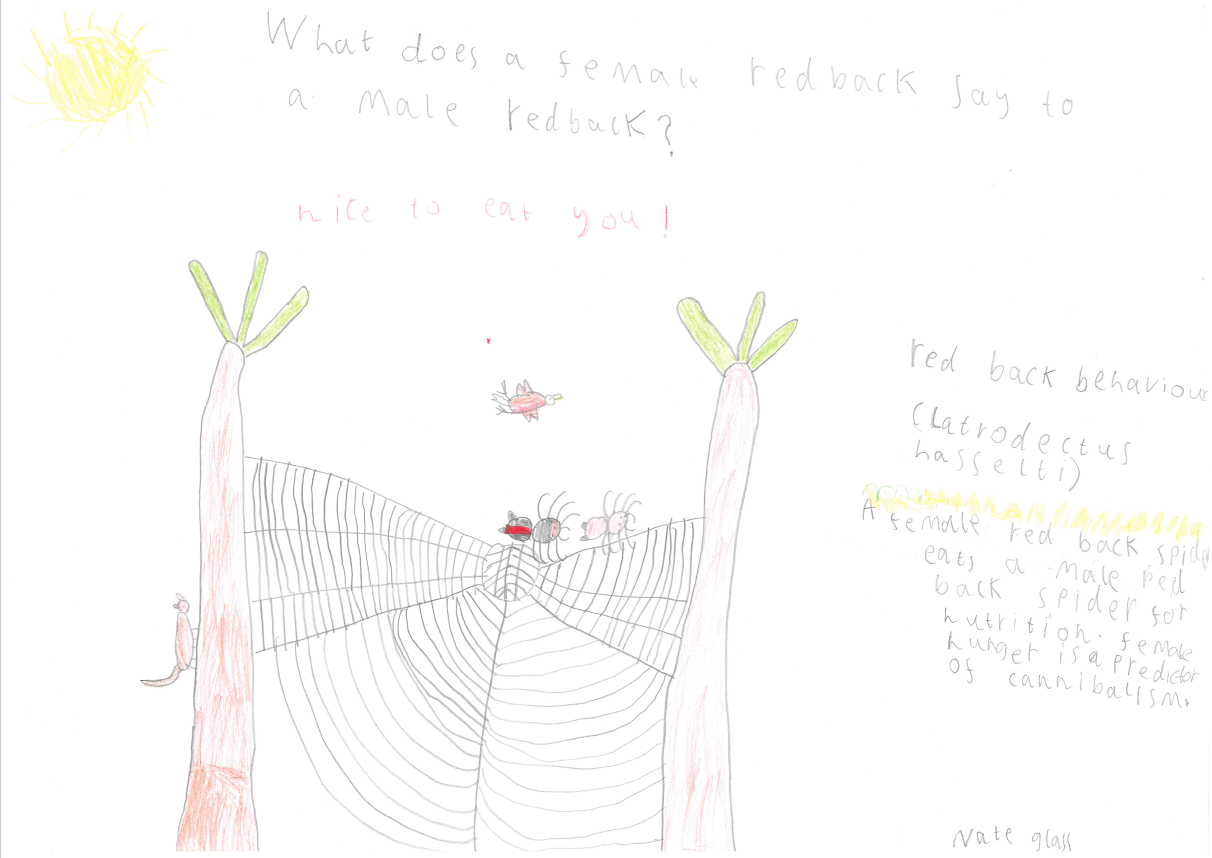 What does a female redback say to
a male redback?
nice to eat you!
red back behaviour
(Latrodectus
hasselti)
A female red back spider
eats a male red
back spider for
nutrition. female
hunger is a predictor
of cannibalism.
Nate glass